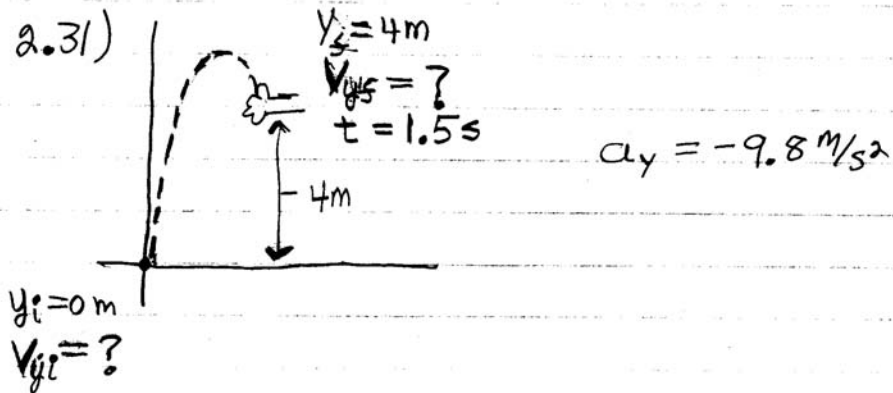 2.31)
y₅ = 4m
Vy₅ = ?
t = 1.5s
a_y = -9.8 m/s²
4m
yᵢ = 0 m
V_yi = ?